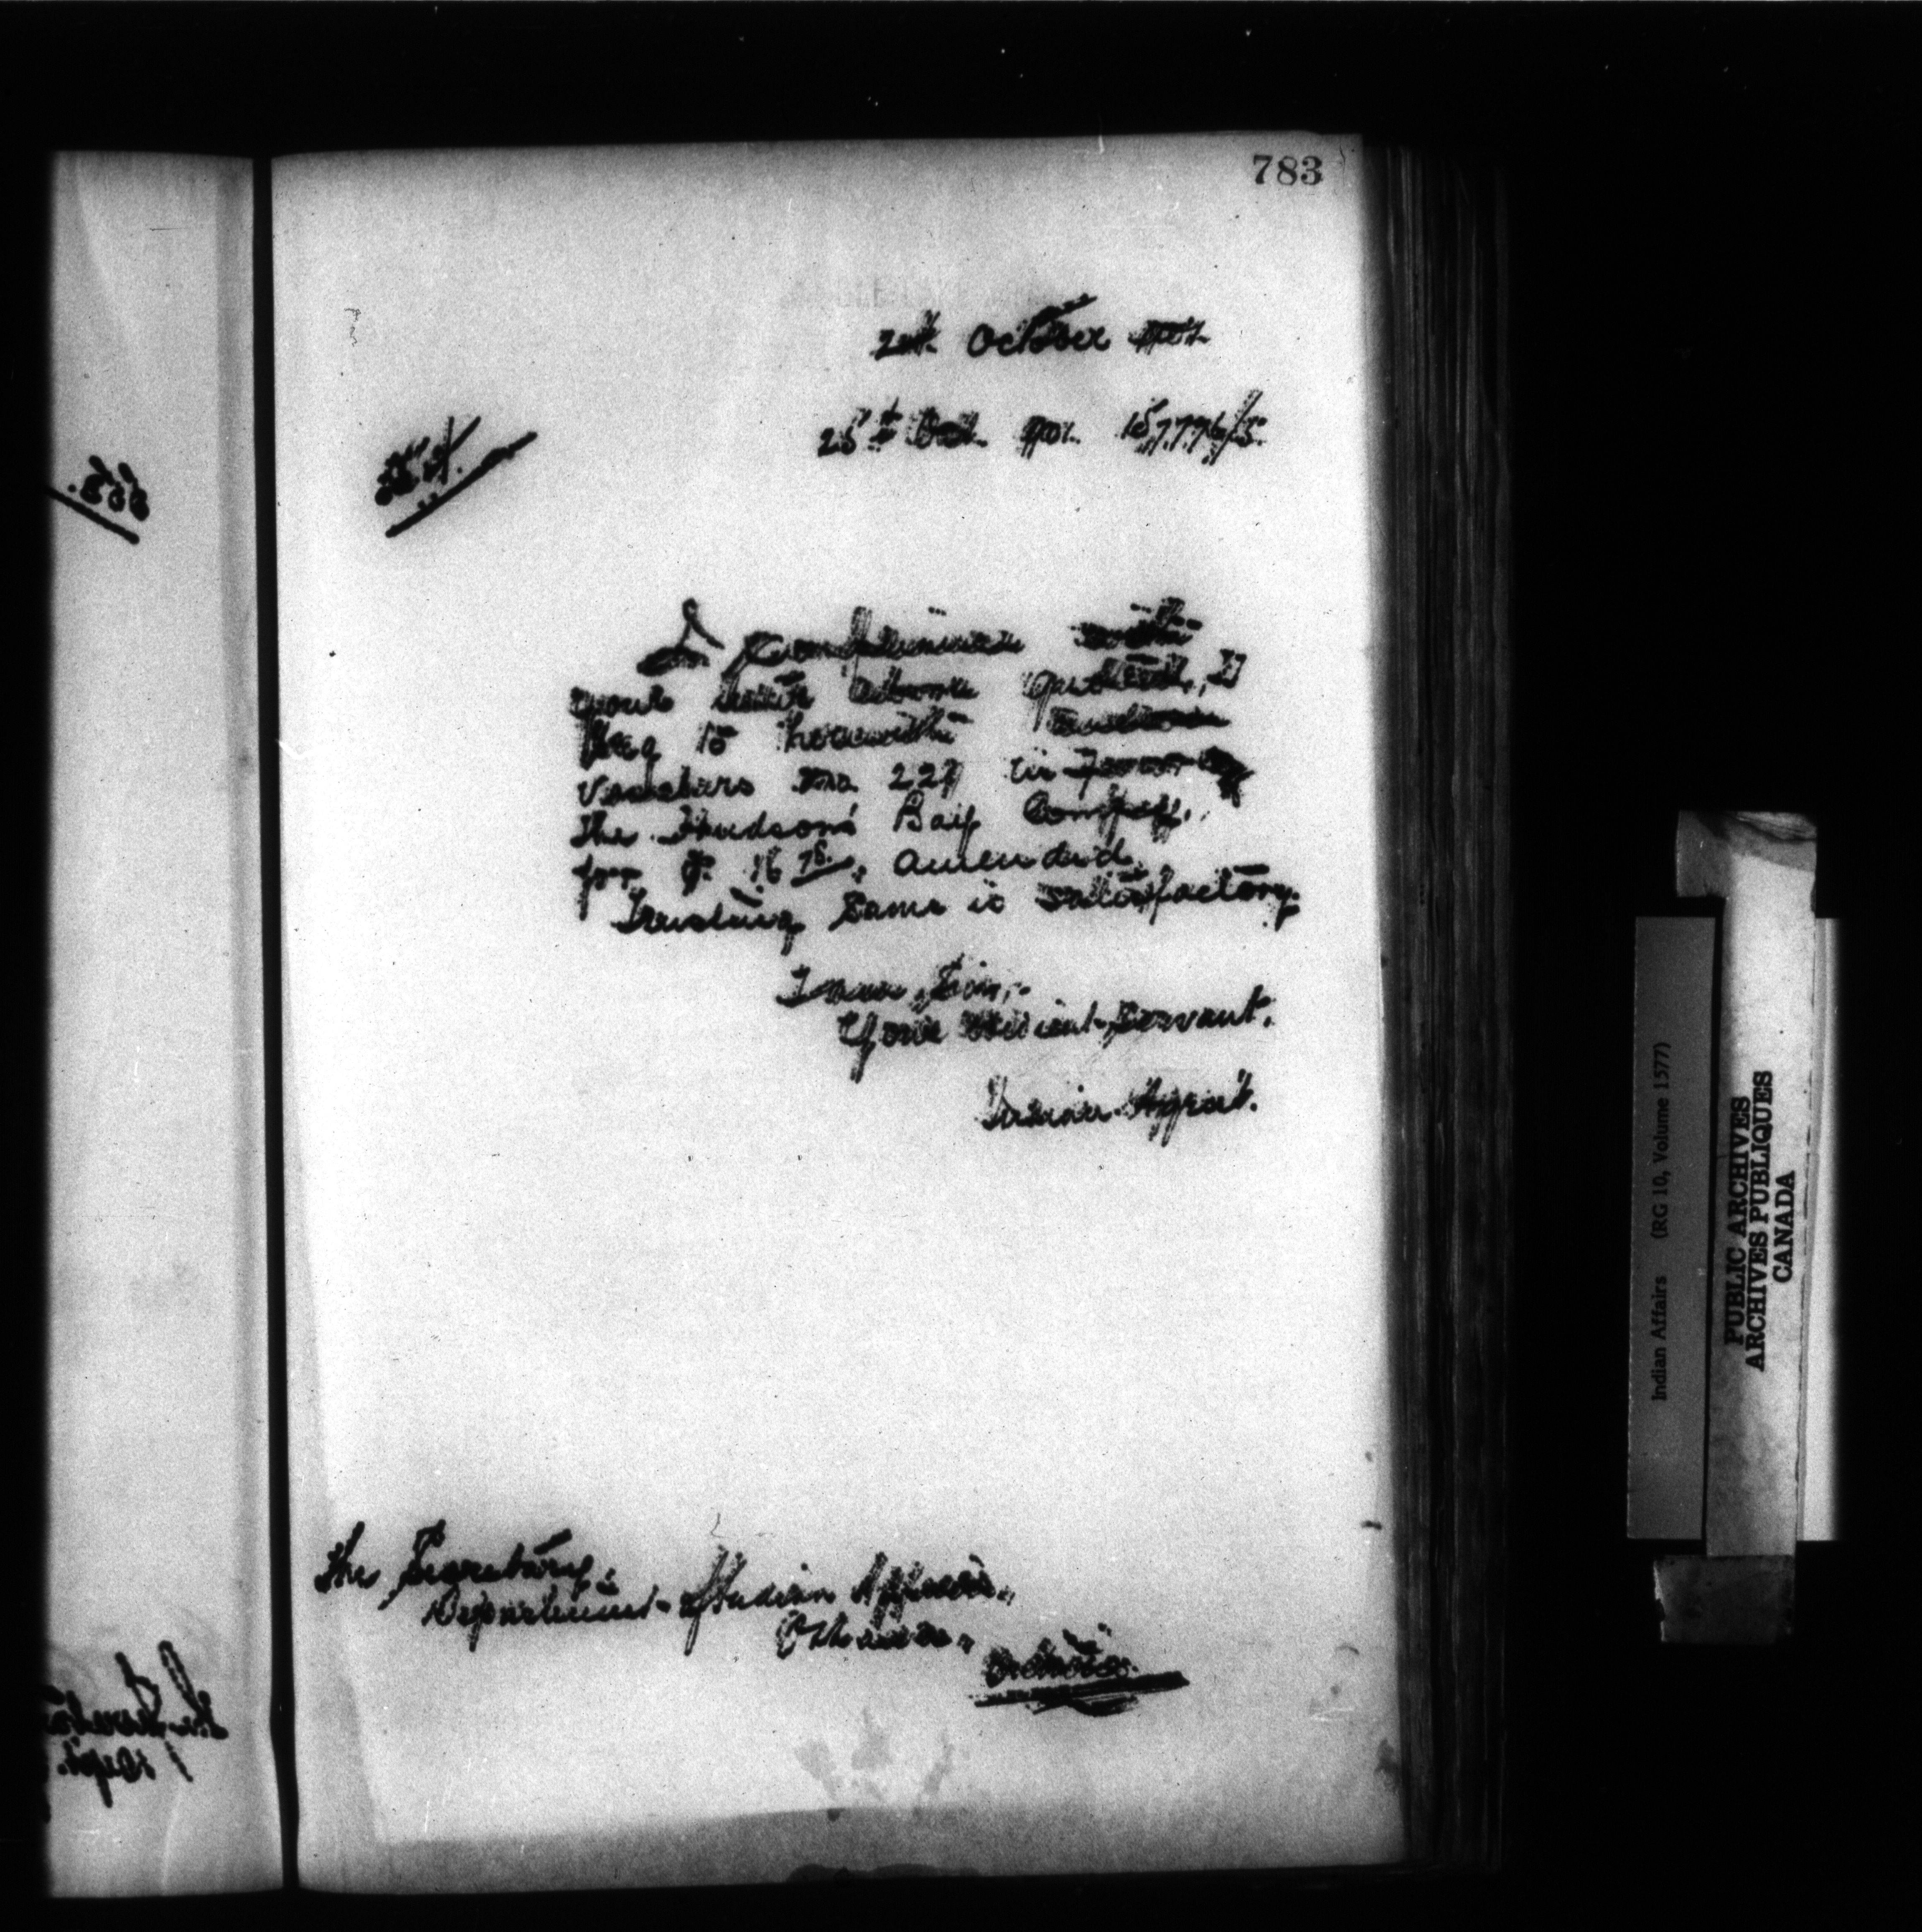 783
October
25th Oct. 157,796/5.
In compliance with
your letter above quoted, I
beg to herewith enclose
Vouchers No. 227 in favor of
The Hudson's Bay Compy.
for $ 16 75, amended.
Trusting same is satisfactory.
I am, Sir,
Your obedient Servant.
Indian Agent.
The Secretary,
Department of Indian Affairs,
Ottawa,
Ontario.
Indian Affairs (RG 10, Volume 1577)
PUBLIC ARCHIVES
ARCHIVES PUBLIQUES
CANADA